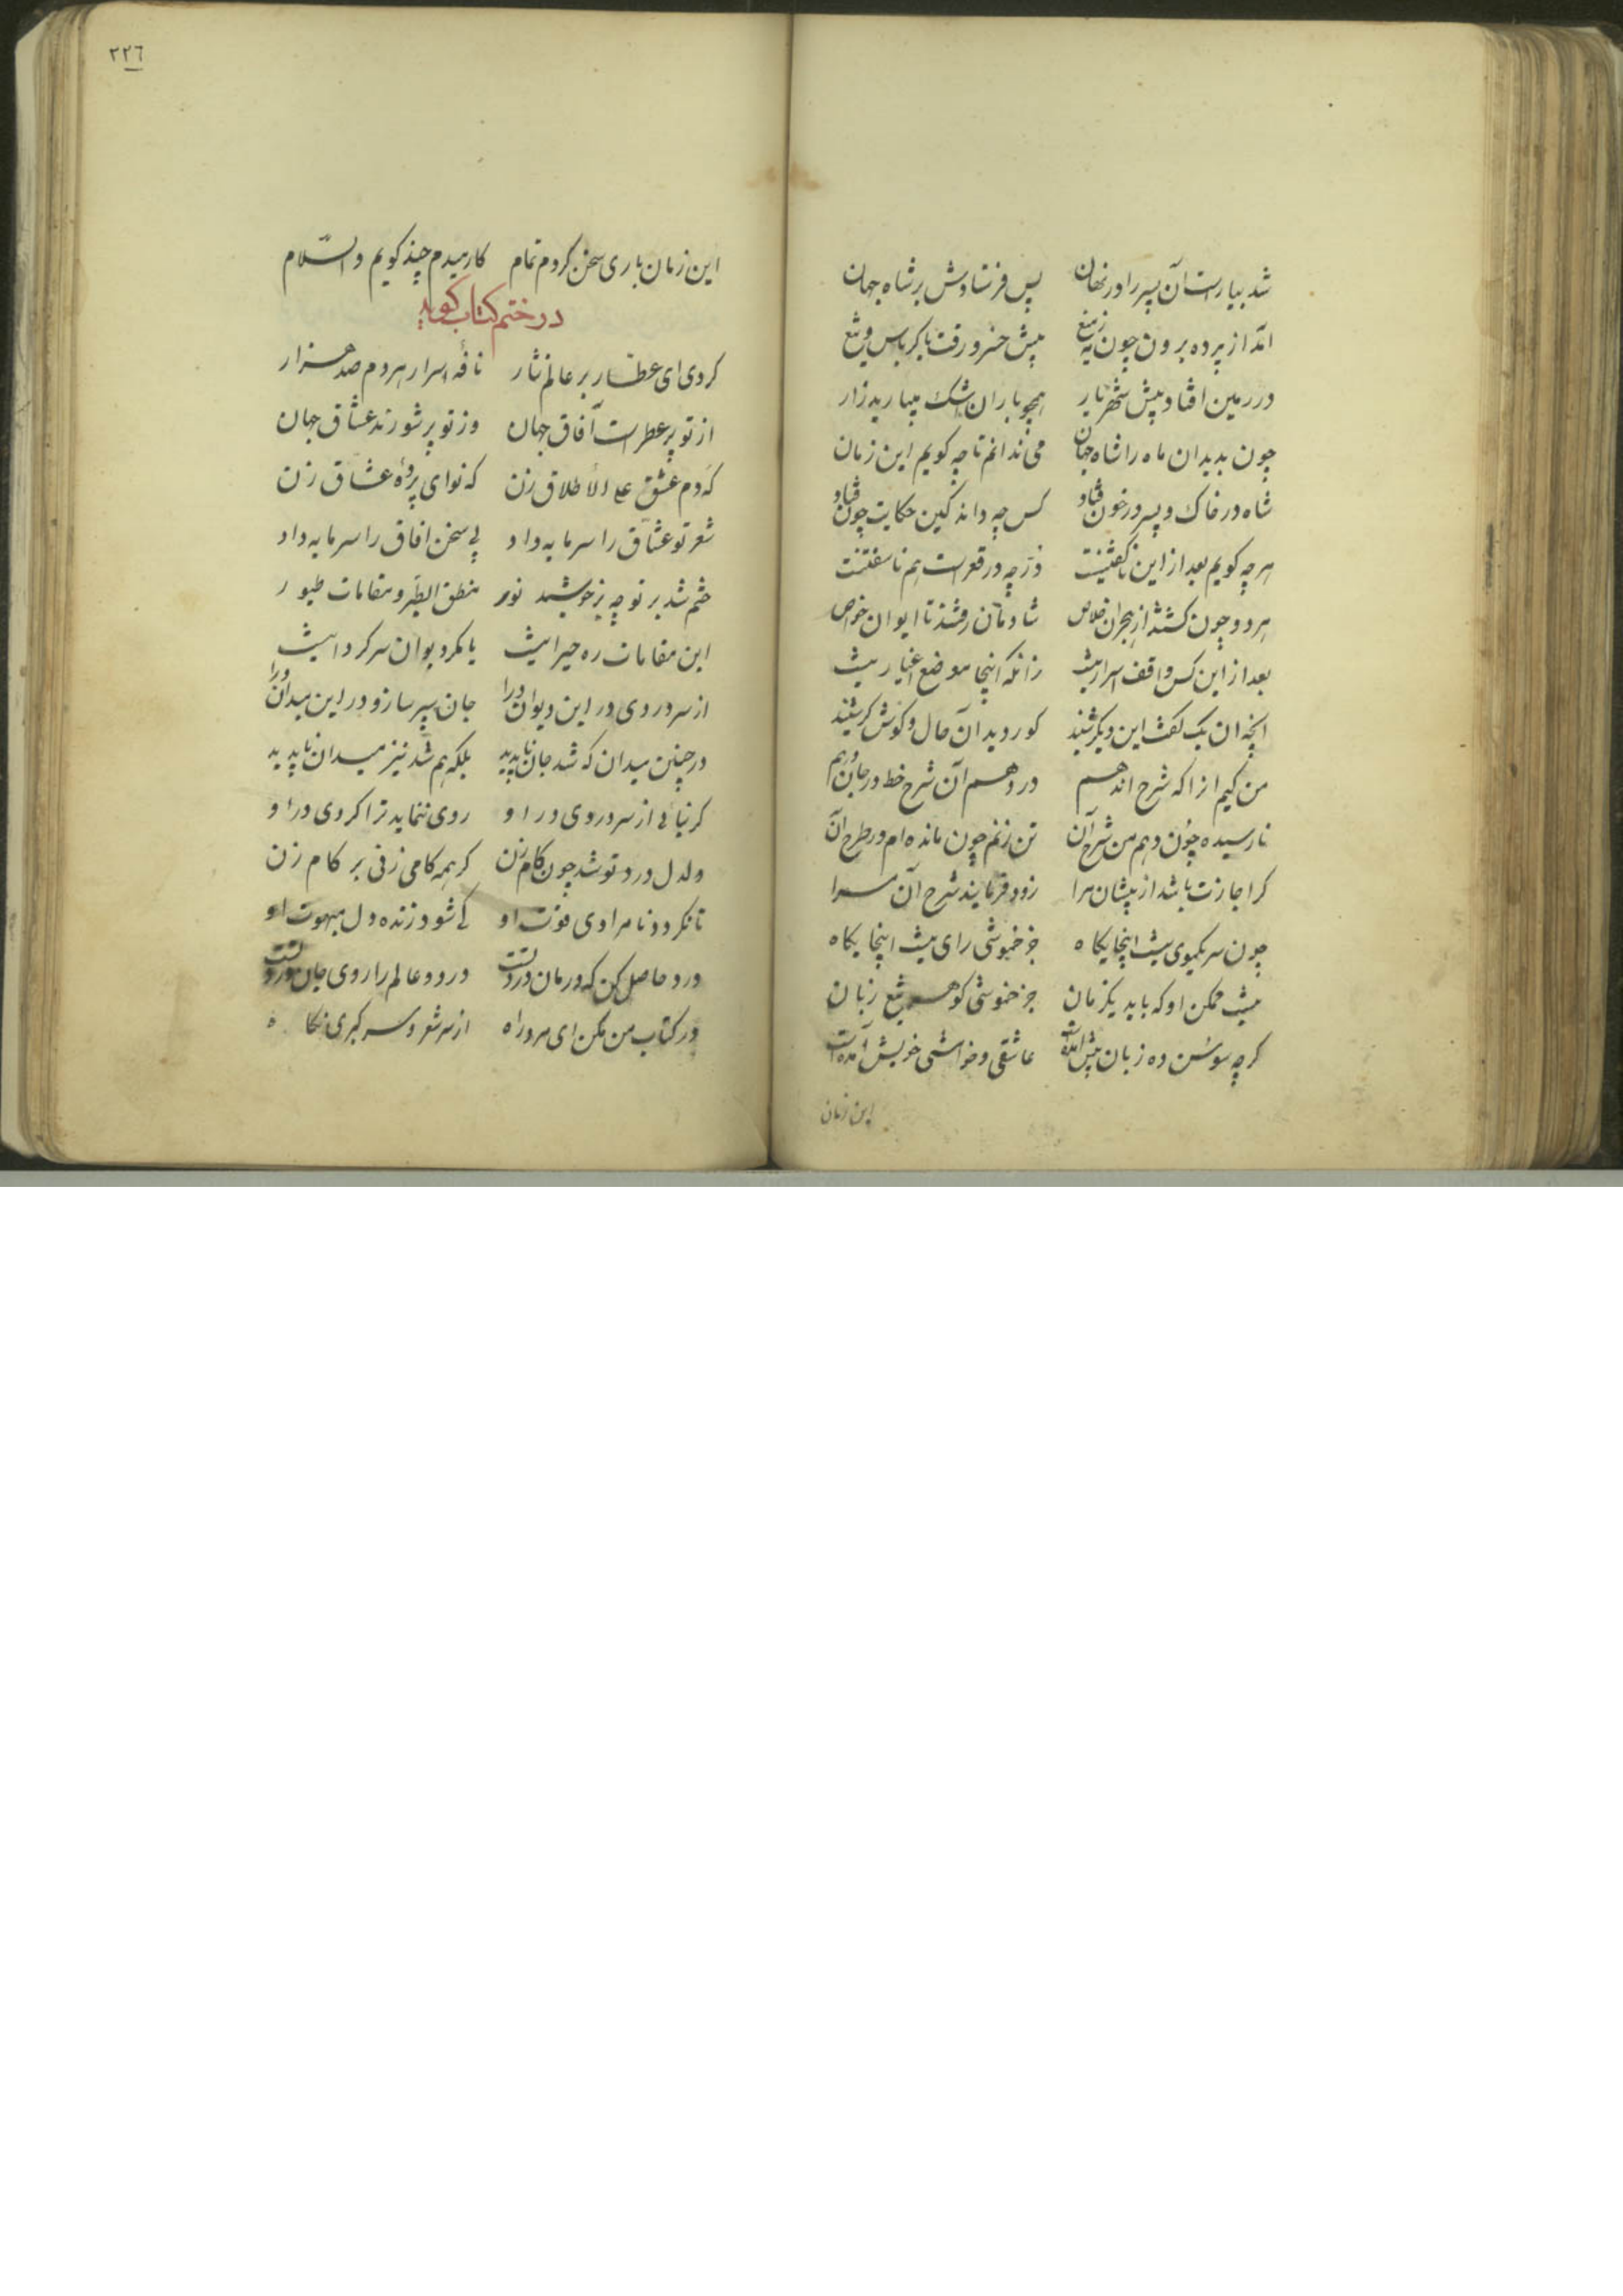 شد بیاراست آن پسر را در نهان پس فرستادش بر شاه جهان
آمد از پرده برون چون مه ز میغ پیش خسرو رفت با کرباس و تیغ
در زمین افتاد پیش شهریار همچو باران اشک میبارید زار
چون بدید ان ماه را شاه جهان می ندانم تا چه کویم این زمان
شاه در خاک و پسر در خون فتاد کس چه داند کین حکایت چون فتاد
هر چه کویم بعد از این ناکفتنیست در چه در قعرست هم ناسفتنست
هر دو چون کشتند از هجران خلاص شادمان رفتند تا ایوان خاص
بعد از این کس واقف اسرار نیست زانکه اینجا موضع اغیار نیست
انچه ان یک کفت این دیکر شنید کور دید آن حال و کوش کر شنید
من کیم انرا که شرح ان دهم ور دهم آن شرح خط در جان دهم
نارسیده چون دهم من شرح آن تن زنم چون مانده ام در طرح آن
کر اجازت باشد از پیشان مرا زود فرمایند شرح آن مرا
چون سر یکموی نیست اینجایکاه جز خموشی رای نیست اینجایکاه
نیست ممکن او که یابد یکزمان جز خموشی کوهر تیغ زبان
کرچه سوسن ده زبان پیش آمدست عاشقی و خوامشی خویش آمدست
این زمان
٢٢٦
این زمان باری سخن کردم تمام کار میدم چند کویم والسّلام
در ختم کتاب کوید
کردی ای عطّار بر عالم نثار نافهٔ اسرار هر دم صد هزار
از تو پر عطرست آفاق جهان وز تو پر شورند عشّاق جهان
که دم عشق علی الاطلاق زن که نوای پردهٔ عشاق زن
شعر تو عشّاق را سرمایه داد بی سخن افاق را سرمایه داد
ختم شد بر تو چه بر خورشید نور منطق الطیر و مقامات طیور
این مقامات ره حیرانیست یا مکر دیوان سرکردانیست
از سر دردی در این دیوان درا جان سپر ساز و در این میدان درا
در چنین میدان که شد جان ناپدید بلکه هم شد نیز میدان ناپدید
کر نیائی از سر دردی در او روی ننماید ترا کردی در او
دلدل درد تو شد چون کام زن کر همه کامی زنی بر کام زن
تا نکردد نامرادی قوت او کی شود زنده دل مبهوت او
درد حاصل کن که درمان درد تست در دو عالم را روی جان درد تست
در کتاب من مکن ای مرد راه از سر شعر و سر کبری نکاه